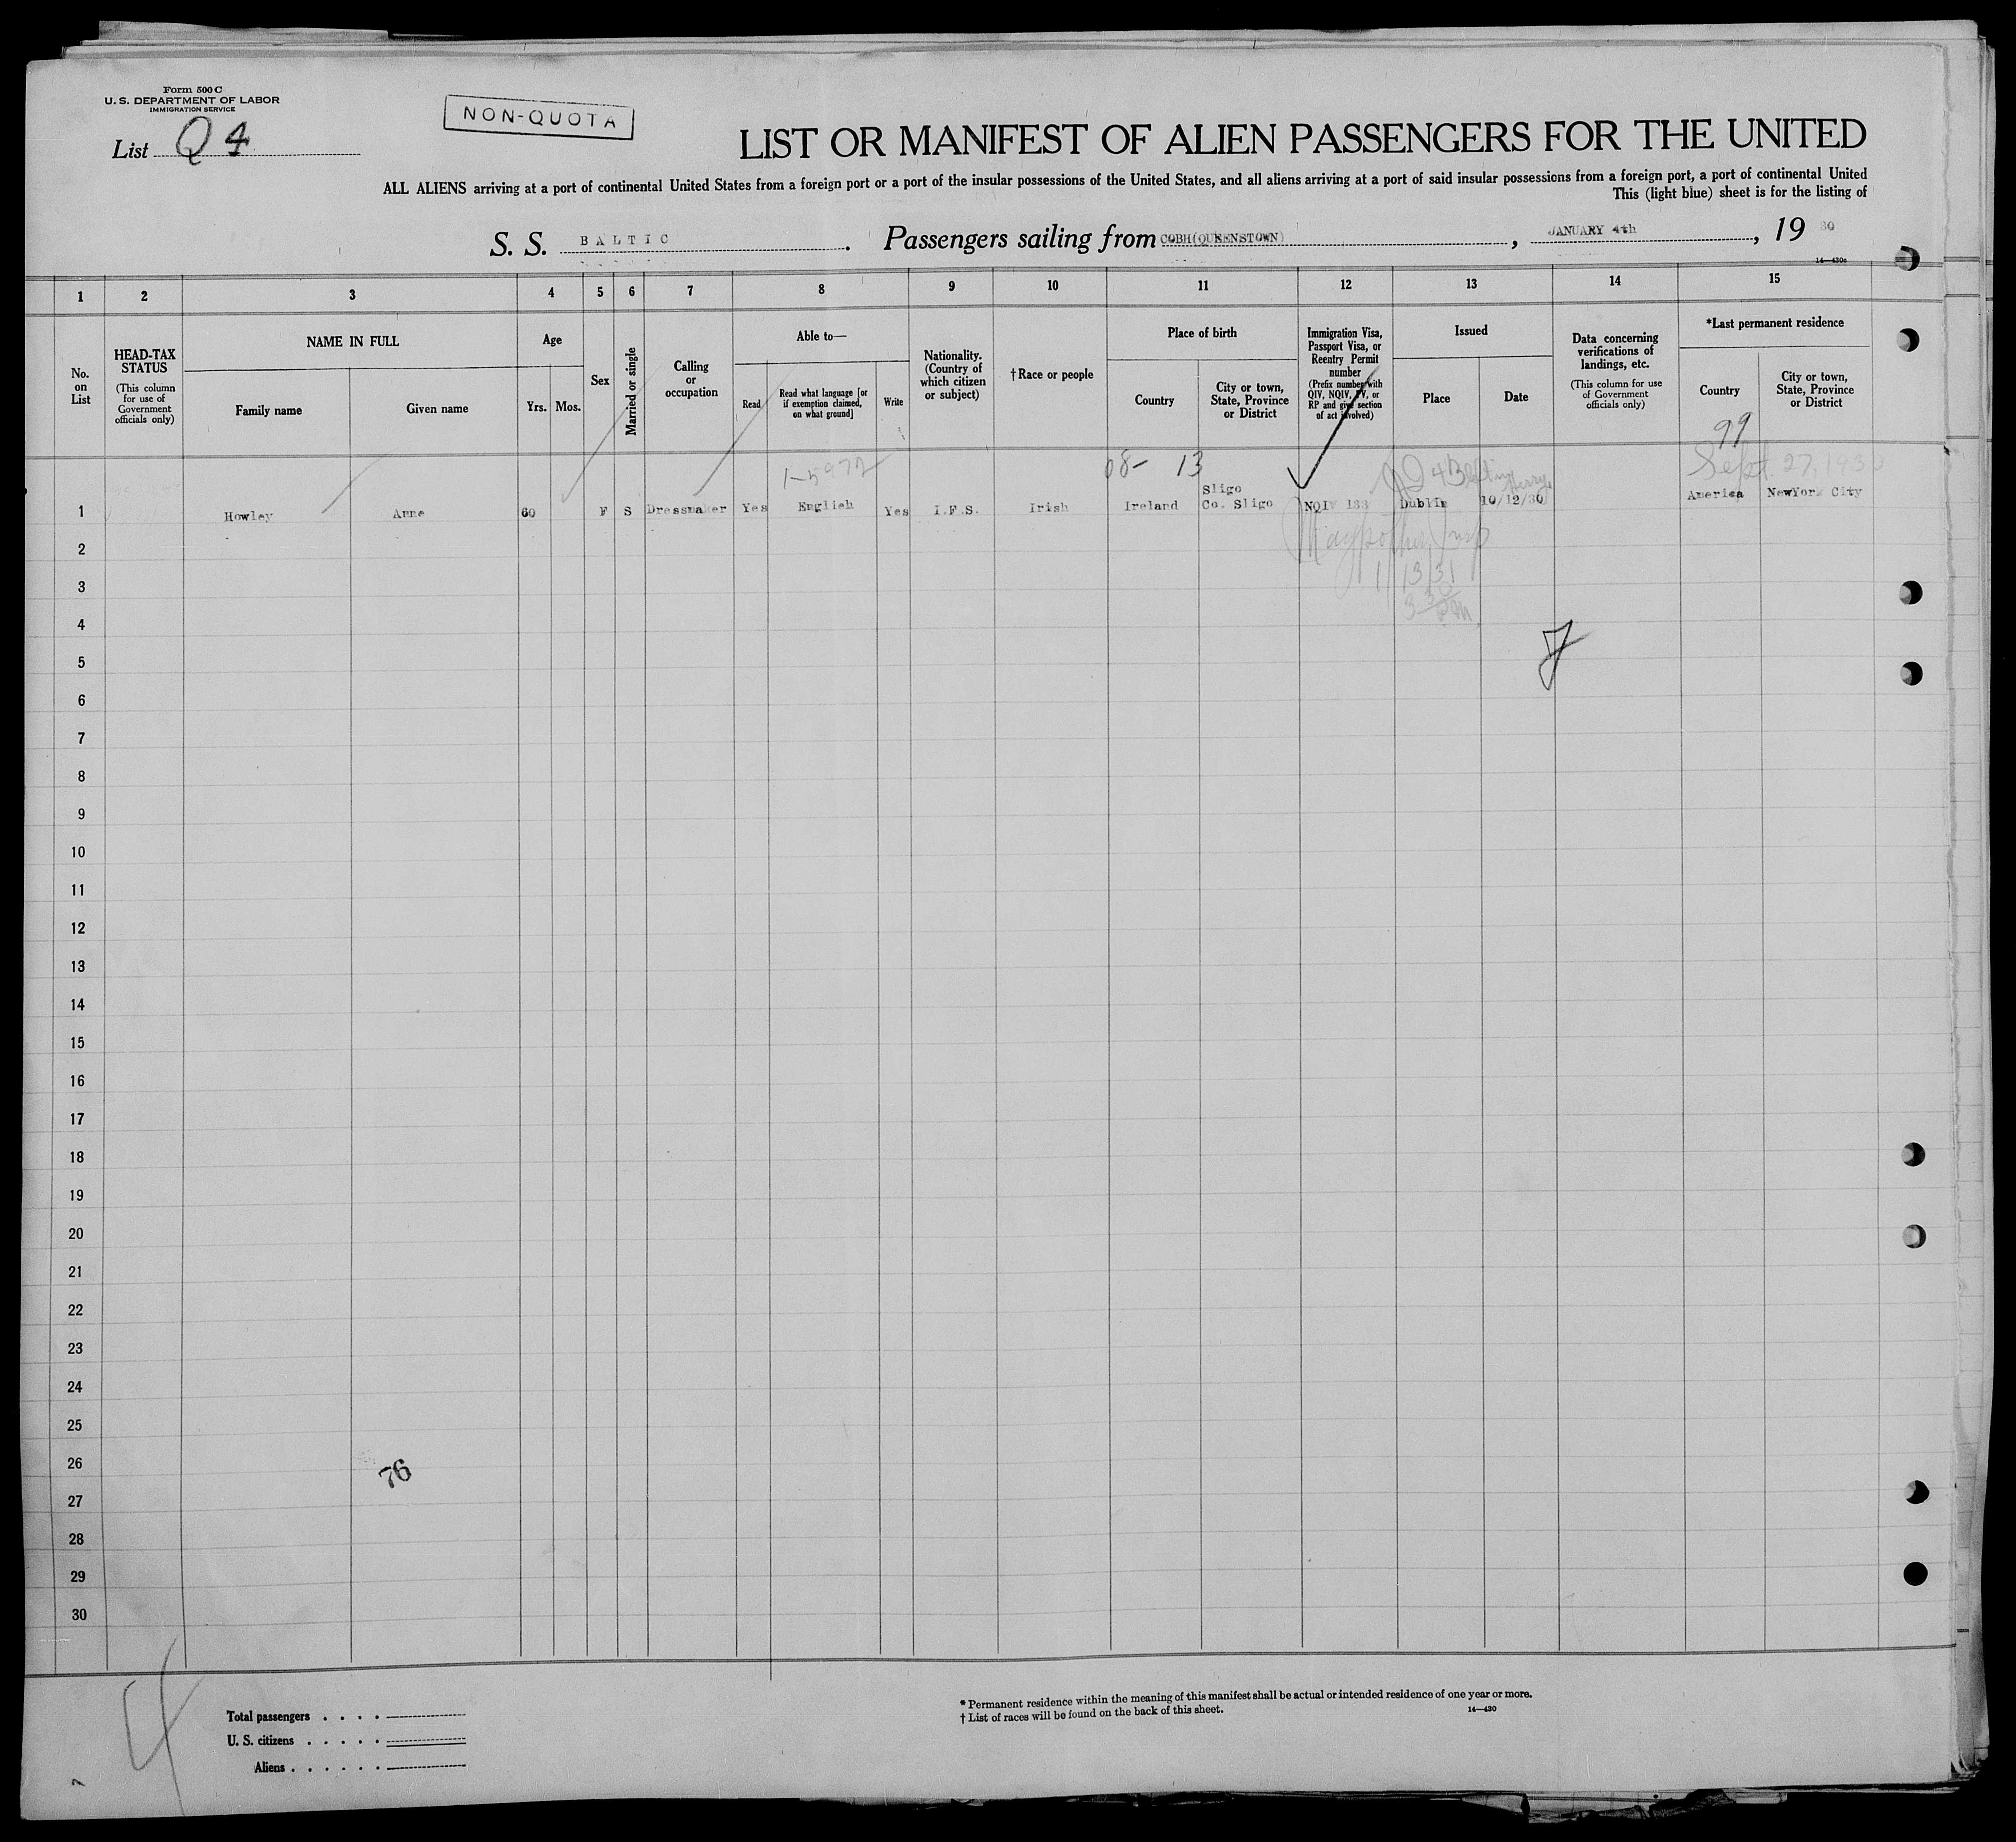 Form 500 C
U. S. DEPARTMENT OF LABOR
IMMIGRATION SERVICE
List Q 4
NON-QUOTA
LIST OR MANIFEST OF ALIEN PASSENGERS FOR THE UNITED
ALL ALIENS arriving at a port of continental United States from a foreign port or a port of the insular possessions of the United States, and all aliens arriving at a port of said insular possessions from a foreign port, a port of continental United
This (light blue) sheet is for the listing of
S. S. BALTIC. Passengers sailing from COBH(QUEENSTOWN), JANUARY 4th, 19 30
14—430c
1 2 3 4 5 6 7 8 9 10 11 12 13 14 15
No. on List
HEAD-TAX STATUS
(This column for use of Government officials only)
NAME IN FULL
Family name
Given name
Age
Yrs. Mos.
Sex
Married or single
Calling or occupation
Able to—
Read
Read what language [or if exemption claimed, on what ground]
Write
Nationality. (Country of which citizen or subject)
†Race or people
Place of birth
Country
City or town, State, Province or District
Immigration Visa, Passport Visa, or Reentry Permit number
(Prefix number with QIV, NQIV, PV, or RP and give section of act involved)
Issued
Place
Date
Data concerning verifications of landings, etc.
(This column for use of Government officials only)
*Last permanent residence
Country
City or town, State, Province or District
99
1-5972
08- 13
Sept. 27, 1930
1 Howley Anne 60 F S Dressmaker Yes English Yes I.F.S. Irish Ireland Sligo Co. Sligo NQIV 133 Dublin 10/12/30 America NewYork City
1/13/31
3 30 PM
2
3
4
5
6
7
8
9
10
11
12
13
14
15
16
17
18
19
20
21
22
23
24
25
26
76
27
28
29
30
4
Total passengers . . . .
U. S. citizens . . . . .
Aliens . . . . . .
* Permanent residence within the meaning of this manifest shall be actual or intended residence of one year or more.
† List of races will be found on the back of this sheet.
14—430